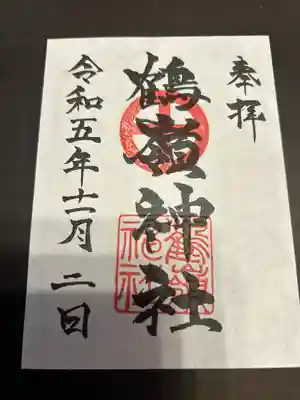 奉拝
鶴嶺神社
令和五年十一月二日